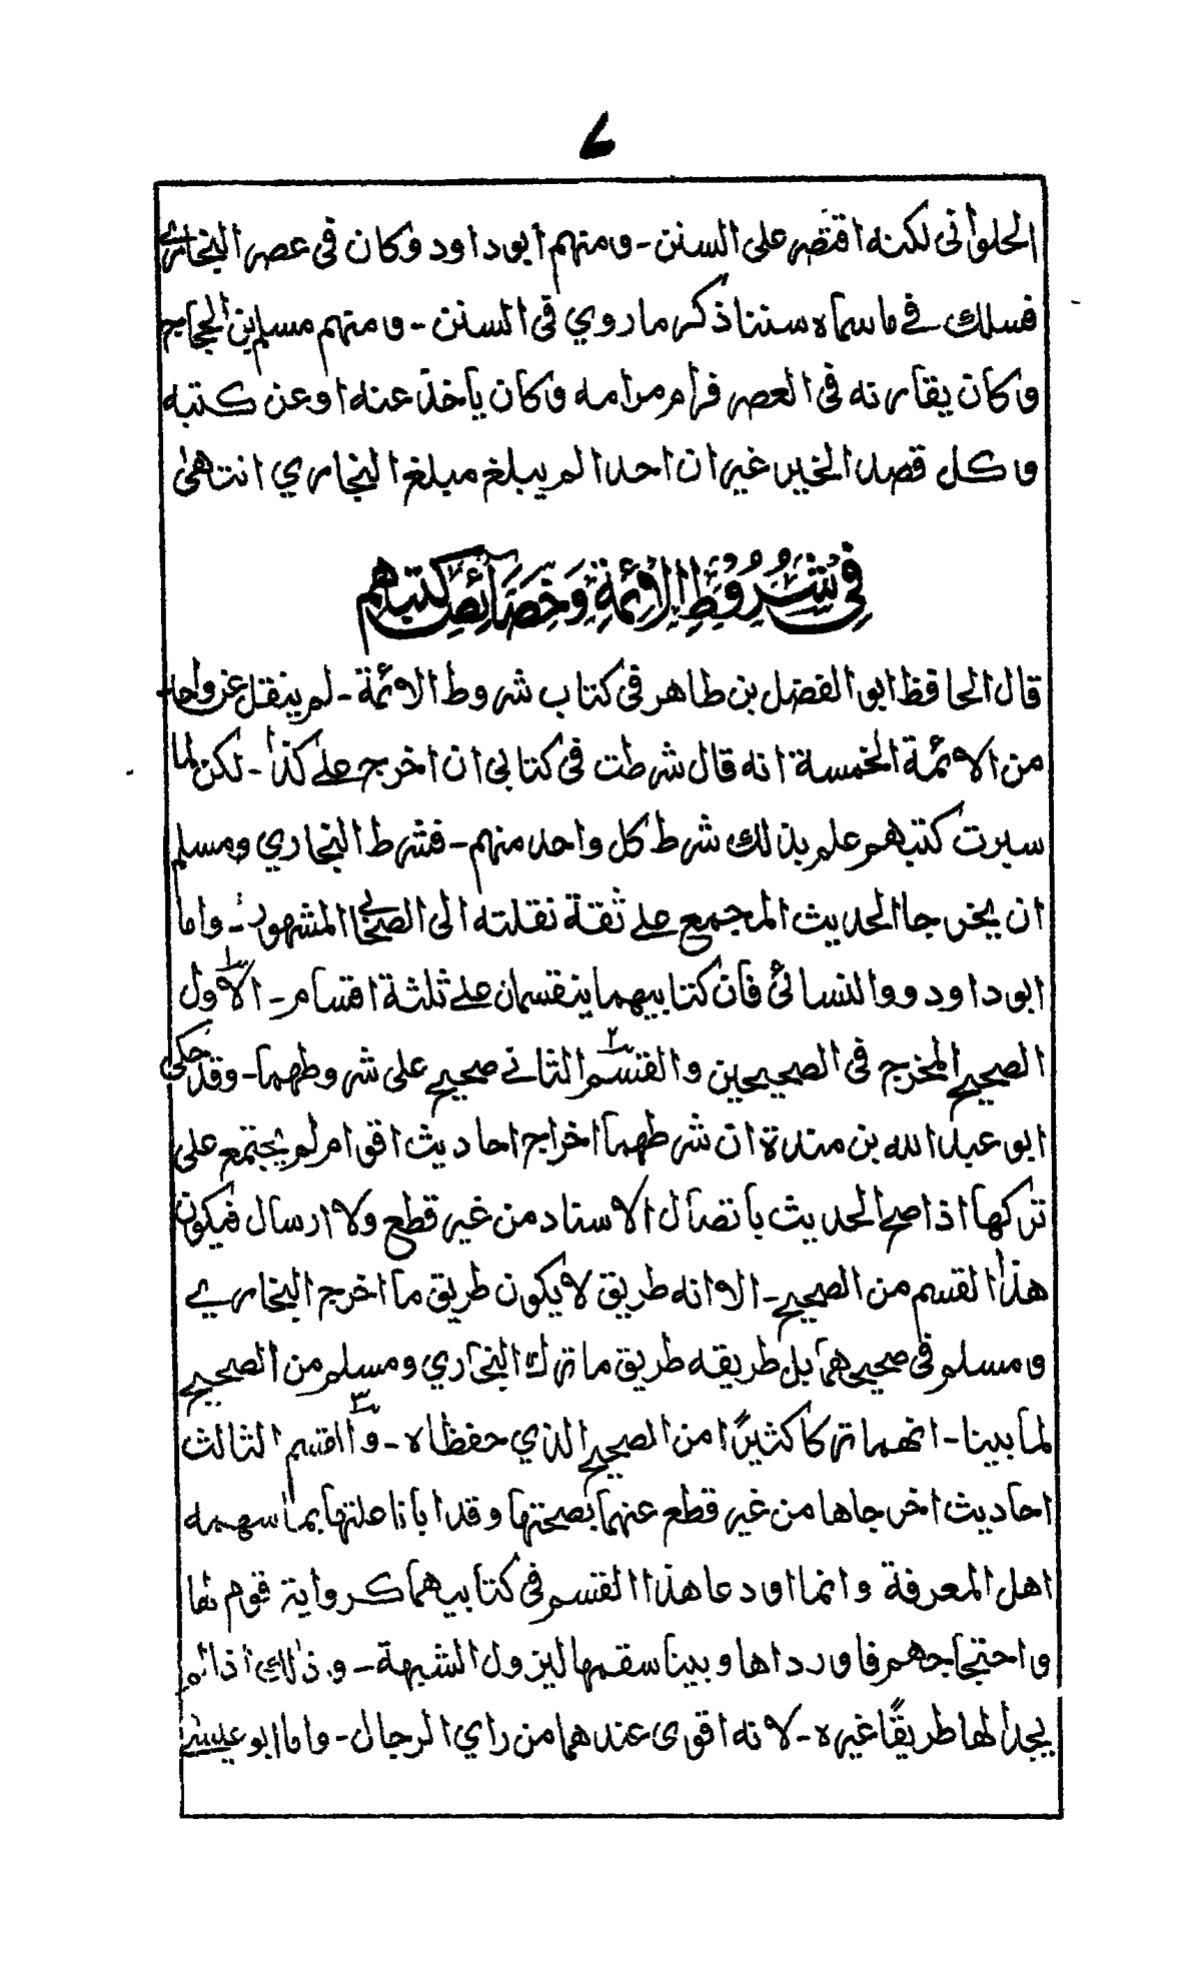 ٧
الحلواني لكنه اقتصر على السنن - ومنهم ابوداود وكان في عصر البخاري
فسلك في ماسماه سننا ذكر ما روي في السنن - ومنهم مسلم بن الحجاج
وكان يقاربه في العصر فرام مرامه وكان يأخذ عنه اوعن كتبه
وكل قصد الخير غير ان احدا لم يبلغ مبلغ البخاري انتهى
فِي شُرُوطِ الاَئِمَّةِ وَخَصَائِصِ كتبهم
قال الحافظ ابو الفضل بن طاهر في كتاب شروط الائمة - لم ينقل عن واحد
من الائمة الخمسة انه قال شرطت في كتابي ان اخرج على كذا - لكن لما
سبرت كتبهم علم بذلك شرط كل واحد منهم - فشرط البخاري ومسلم
ان يخرجا الحديث المجمع على ثقة نقلته الى الصحابي المشهور - واما
ابوداود والنسائي فان كتابيهما ينقسمان على ثلثة اقسام - الاول ١
الصحيح المخرج في الصحيحين والقسم ٢ الثاني صحيح على شروطهما - وقد حكى
ابو عبد الله بن مندة ان شرطهما اخراج احاديث اقوام لم يجتمع على
تركها اذا صح الحديث باتصال الاسناد من غير قطع ولا ارسال فيكون
هذا القسم من الصحيح - الا انه طريق لا يكون طريق ما اخرج البخاري
ومسلم في صحيحيهما بل طريقه طريق ما ترك البخاري ومسلم من الصحيح
لما بينا - انهما تركا كثيرًا من الصحيح الذي حفظاه - والقسم ٣ الثالث
احاديث اخرجاها من غير قطع عنهما بصحتها وقد ابانا علتها بما سهمه
اهل المعرفة وانما اودعا هذا القسم في كتابيهما كرواية قوم لها
واحتجاجهم فاورداها وبينا سقمها ليزول الشبهة - وذلك اذا لم
يجدا لها طريقًا غيره - لانه اقوى عندهما من راي الرجال - واما ابو عيسى